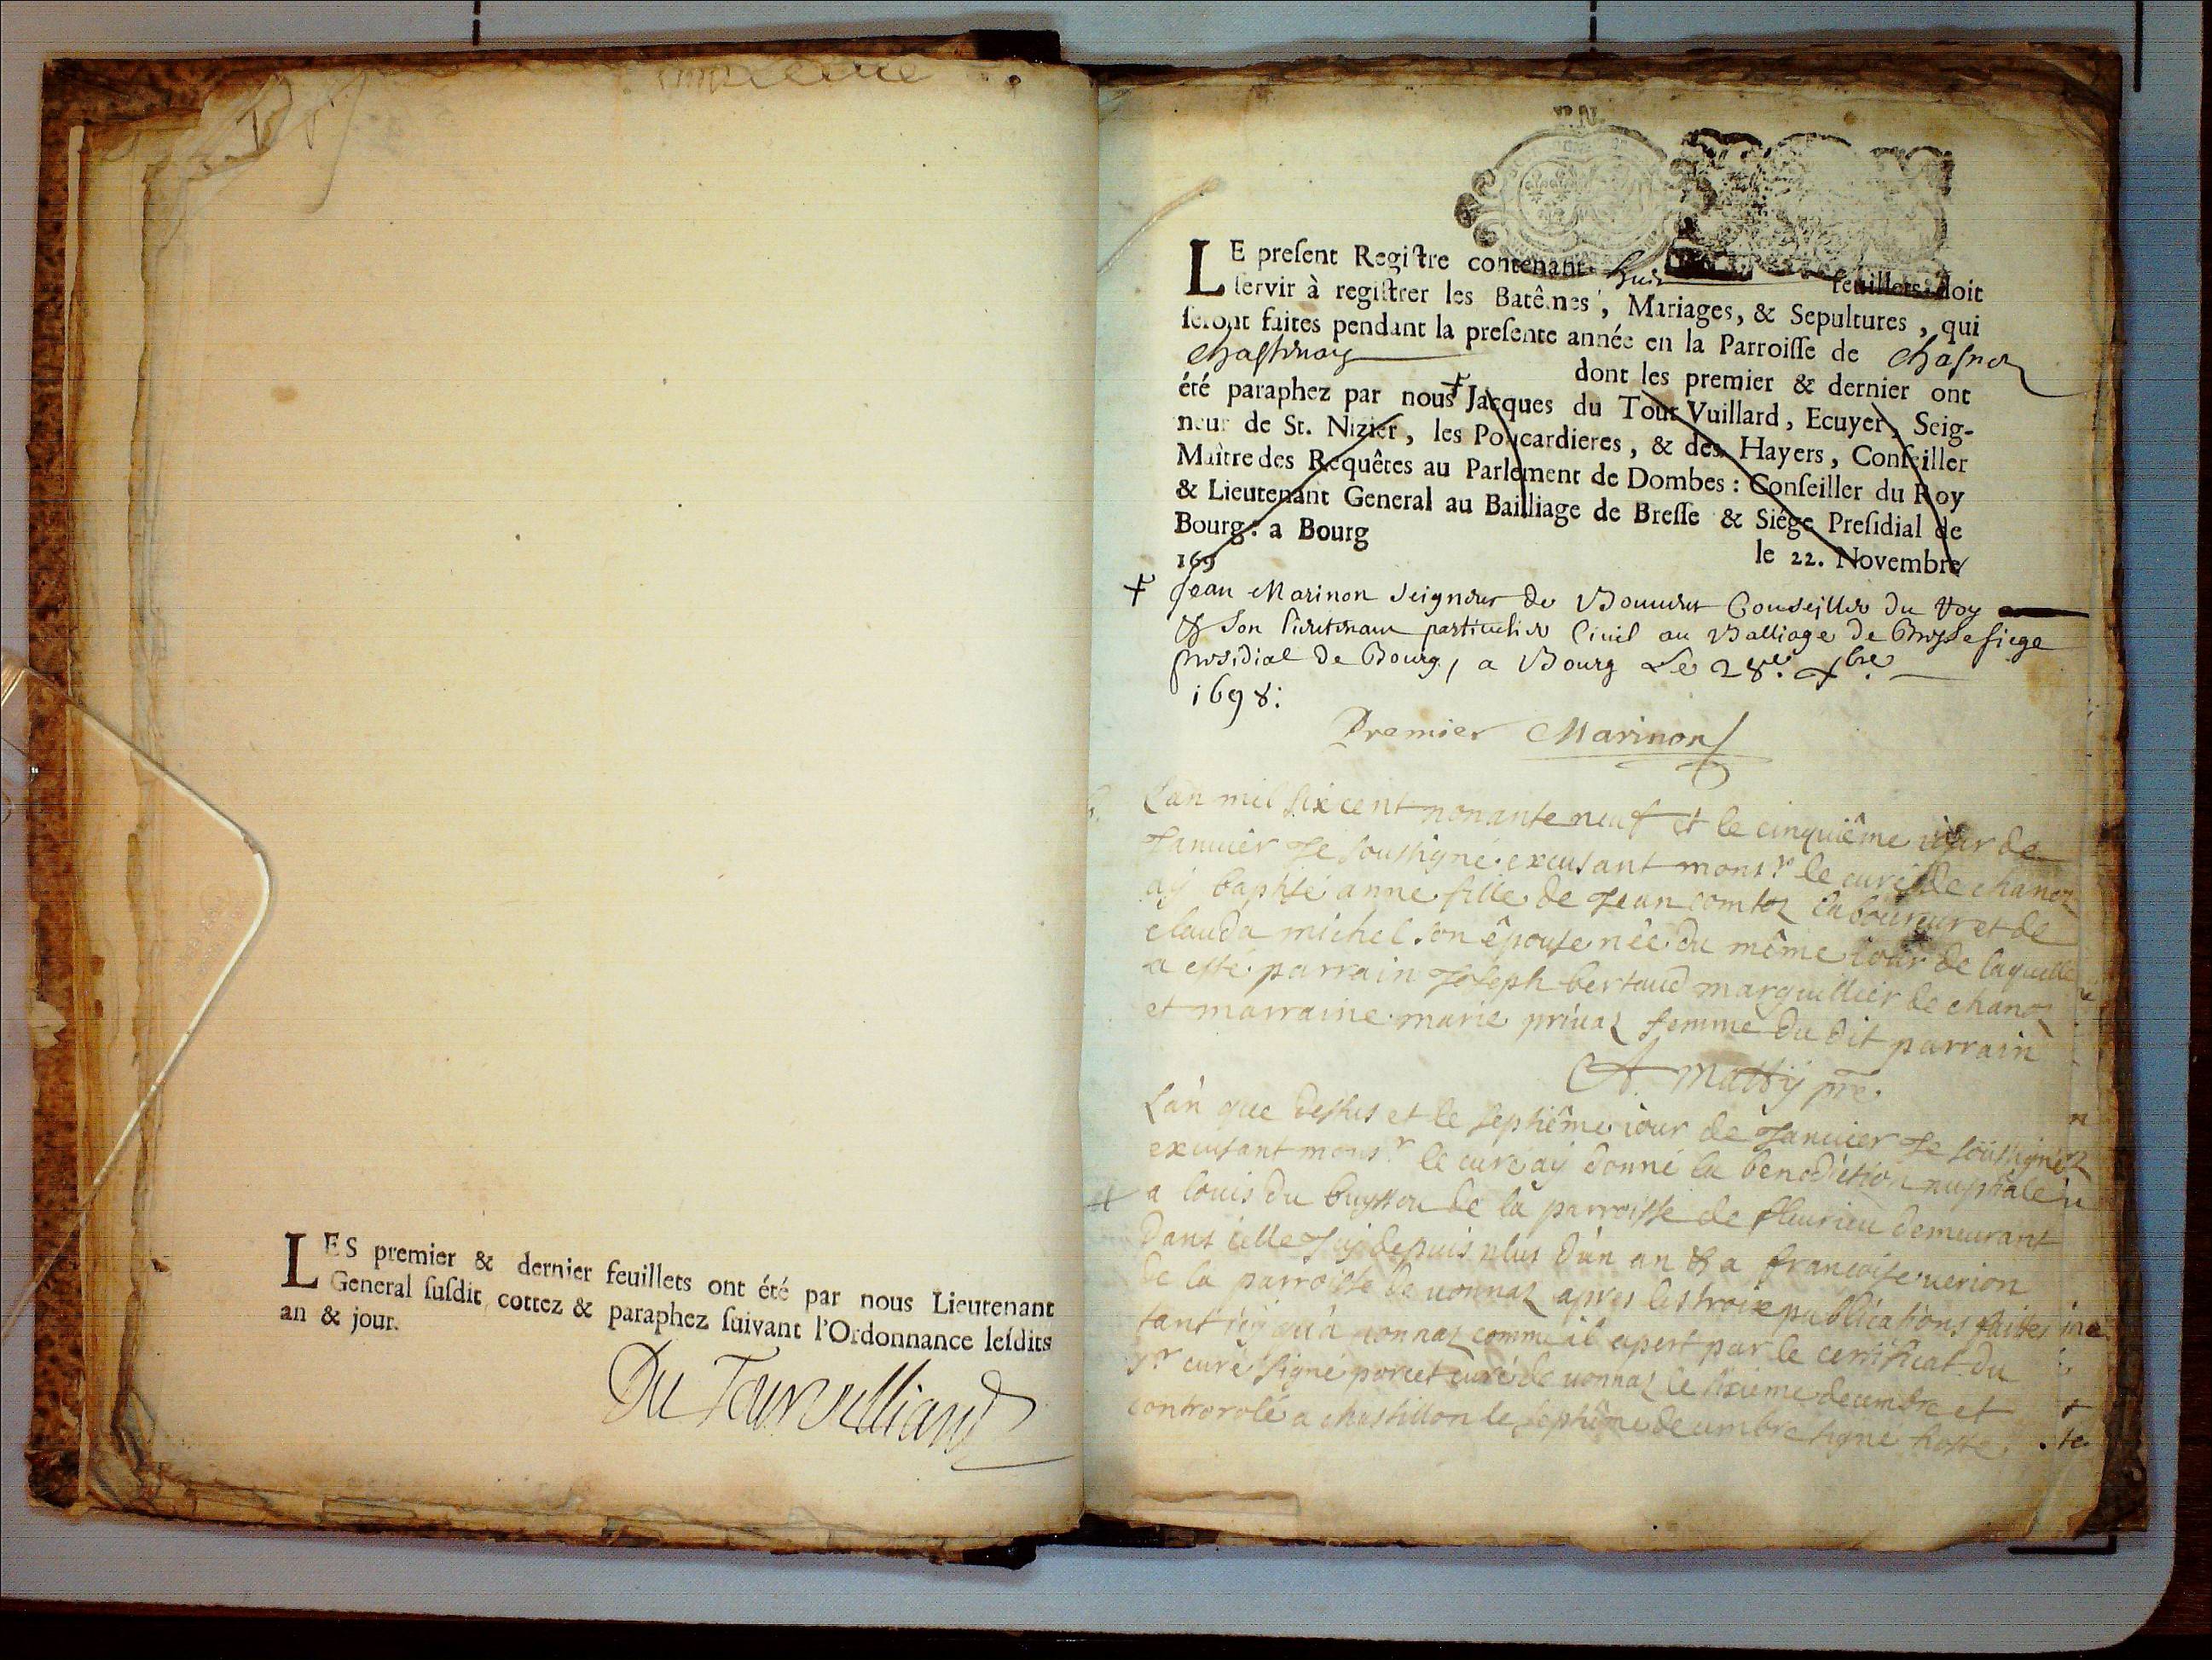 LES premier & dernier feuillets ont été par nous Lieutenant
General ſuſdit, cottez & paraphez ſuivant l'Ordonnance leſdits
an & jour.
LE preſent Regiſtre contenant huit feuillets, doit
ſervir à regiſtrer les Batêmes, Mariages, & Sepultures, qui
ſeront faites pendant la preſente année en la Parroiſſe de
dont les premier & dernier ont
été paraphez par nous + Jacques du Tour Vuillard, Ecuyer, Seig-
neur de St. Nizier, les Poucardieres, & des Hayers, Conſeiller
Maître des Requêtes au Parlement de Dombes : Conſeiller du Roy
& Lieutenant General au Bailliage de Breſſe & Siége Preſidial de
Bourg : a Bourg le 22. Novembre
169
+ Jean Marinon Seigneur de Conseiller du Roy
& Son lieutenant particulier Civil au Balliage de Bresse siege
presidial de Bourg, a Bourg Le 28e. xbre.
1698:
Premier Marinon
Lan mil six cent nonante neuf et le cinquiême iour de
Januier Je soussigné excusant monsr. le curé de chanoz
aÿ baptisé anne fille de Jean comtez laboureur et de
clauda michel son êpouse née du même iour de laquelle
a esté parrain Joseph bertaud marguillier de chanoz
et marraine marie priuaz femme du dit parrain
A Matthÿ pre.
Lan que dessus et le septiême iour de Januier Je soussigné
excusant monsr le curé aÿ donné la benediction nuptiale
a louis du buysson de la parroisse de fleurieu demeurant
dans icelle depuis plus d'un an & a francoise uerion
de la parroisse de uonnaz apres les troix publications faites
tant icÿ qu'à uonnaz comme il apert par le certificat du
sr curé signé porcet curé de uonnaz le sixieme decembre et
controrolé a chastillon le septiême decembre signé hoste.